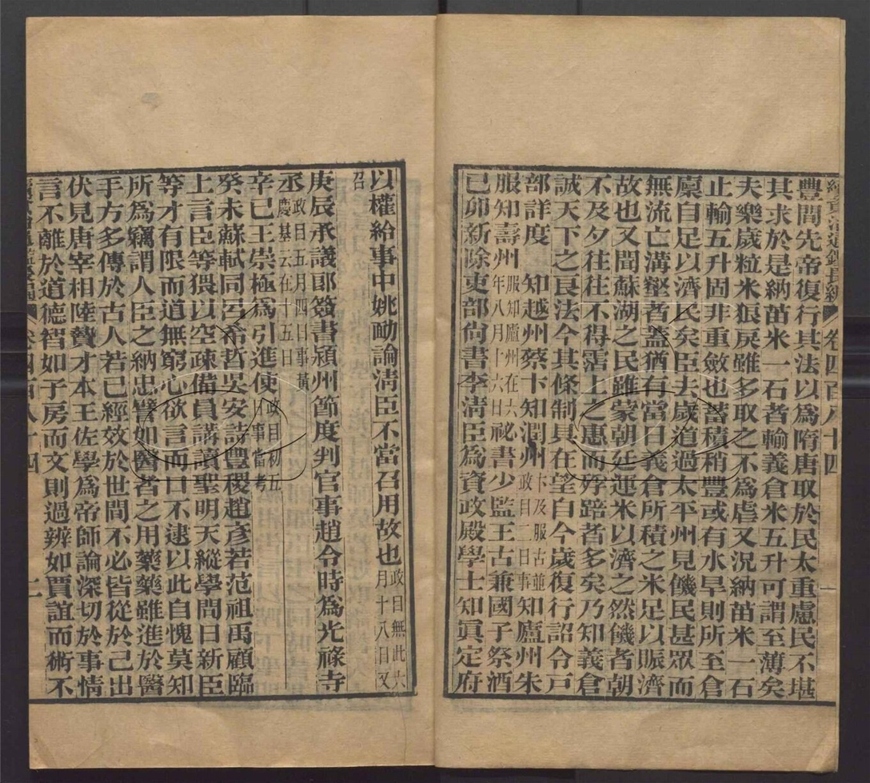 續資治通鑑長編 卷四百八十四 一
豐間先帝復行其法以爲隋唐取於民太重慮民不堪
其求於是納苗米一石者輸義倉米五升可謂至薄矣
夫樂歲粒米狼戾雖多取之不爲虐又況納苗米一石
止輸五升固非重斂也蓄積稍豐或有水旱則所至倉
廩自足以濟民矣臣去歲道過太平州見饑民甚眾而
無流亡溝壑者蓋猶有當日義倉所積之米足以賑濟
故也又聞蘇湖之民雖蒙朝廷運米以濟之然饑者朝
不及夕往往不得霑上之惠而殍踣者多矣乃知義倉
誠天下之良法今其條制具在望自今歲復行詔令戸
部詳度 知越州蔡卞知潤州卞及服古並政目二日事知廬州朱
服知壽州服知廬州在六年八月十六日祕書少監王古兼國子祭酒
己卯新除吏部尚書李淸臣爲資政殿學士知眞定府
以權給事中姚勔論淸臣不當召用故也政目無此六月十八日又
召
庚辰承議郎簽書潁州節度判官事趙令時爲光祿寺
丞政目五月四日事黃慶基云在十五日
辛巳王崇極爲引進使政目初五日事當考
癸未蘇軾同呂希哲吳安詩豐稷趙彥若范祖禹顧臨
上言臣等猥以空疎備員講讀聖明天縱學問日新臣
等才有限而道無窮心欲言而口不逮以此自愧莫知
所爲竊謂人臣之納忠譬如醫者之用藥藥雖進於醫
手方多傳於古人若已經效於世間不必皆從於己出
伏見唐宰相陸贄才本王佐學爲帝師論深切於事情
言不離於道德智如子房而文則過辨如賈誼而術不
卷四百八十四 二